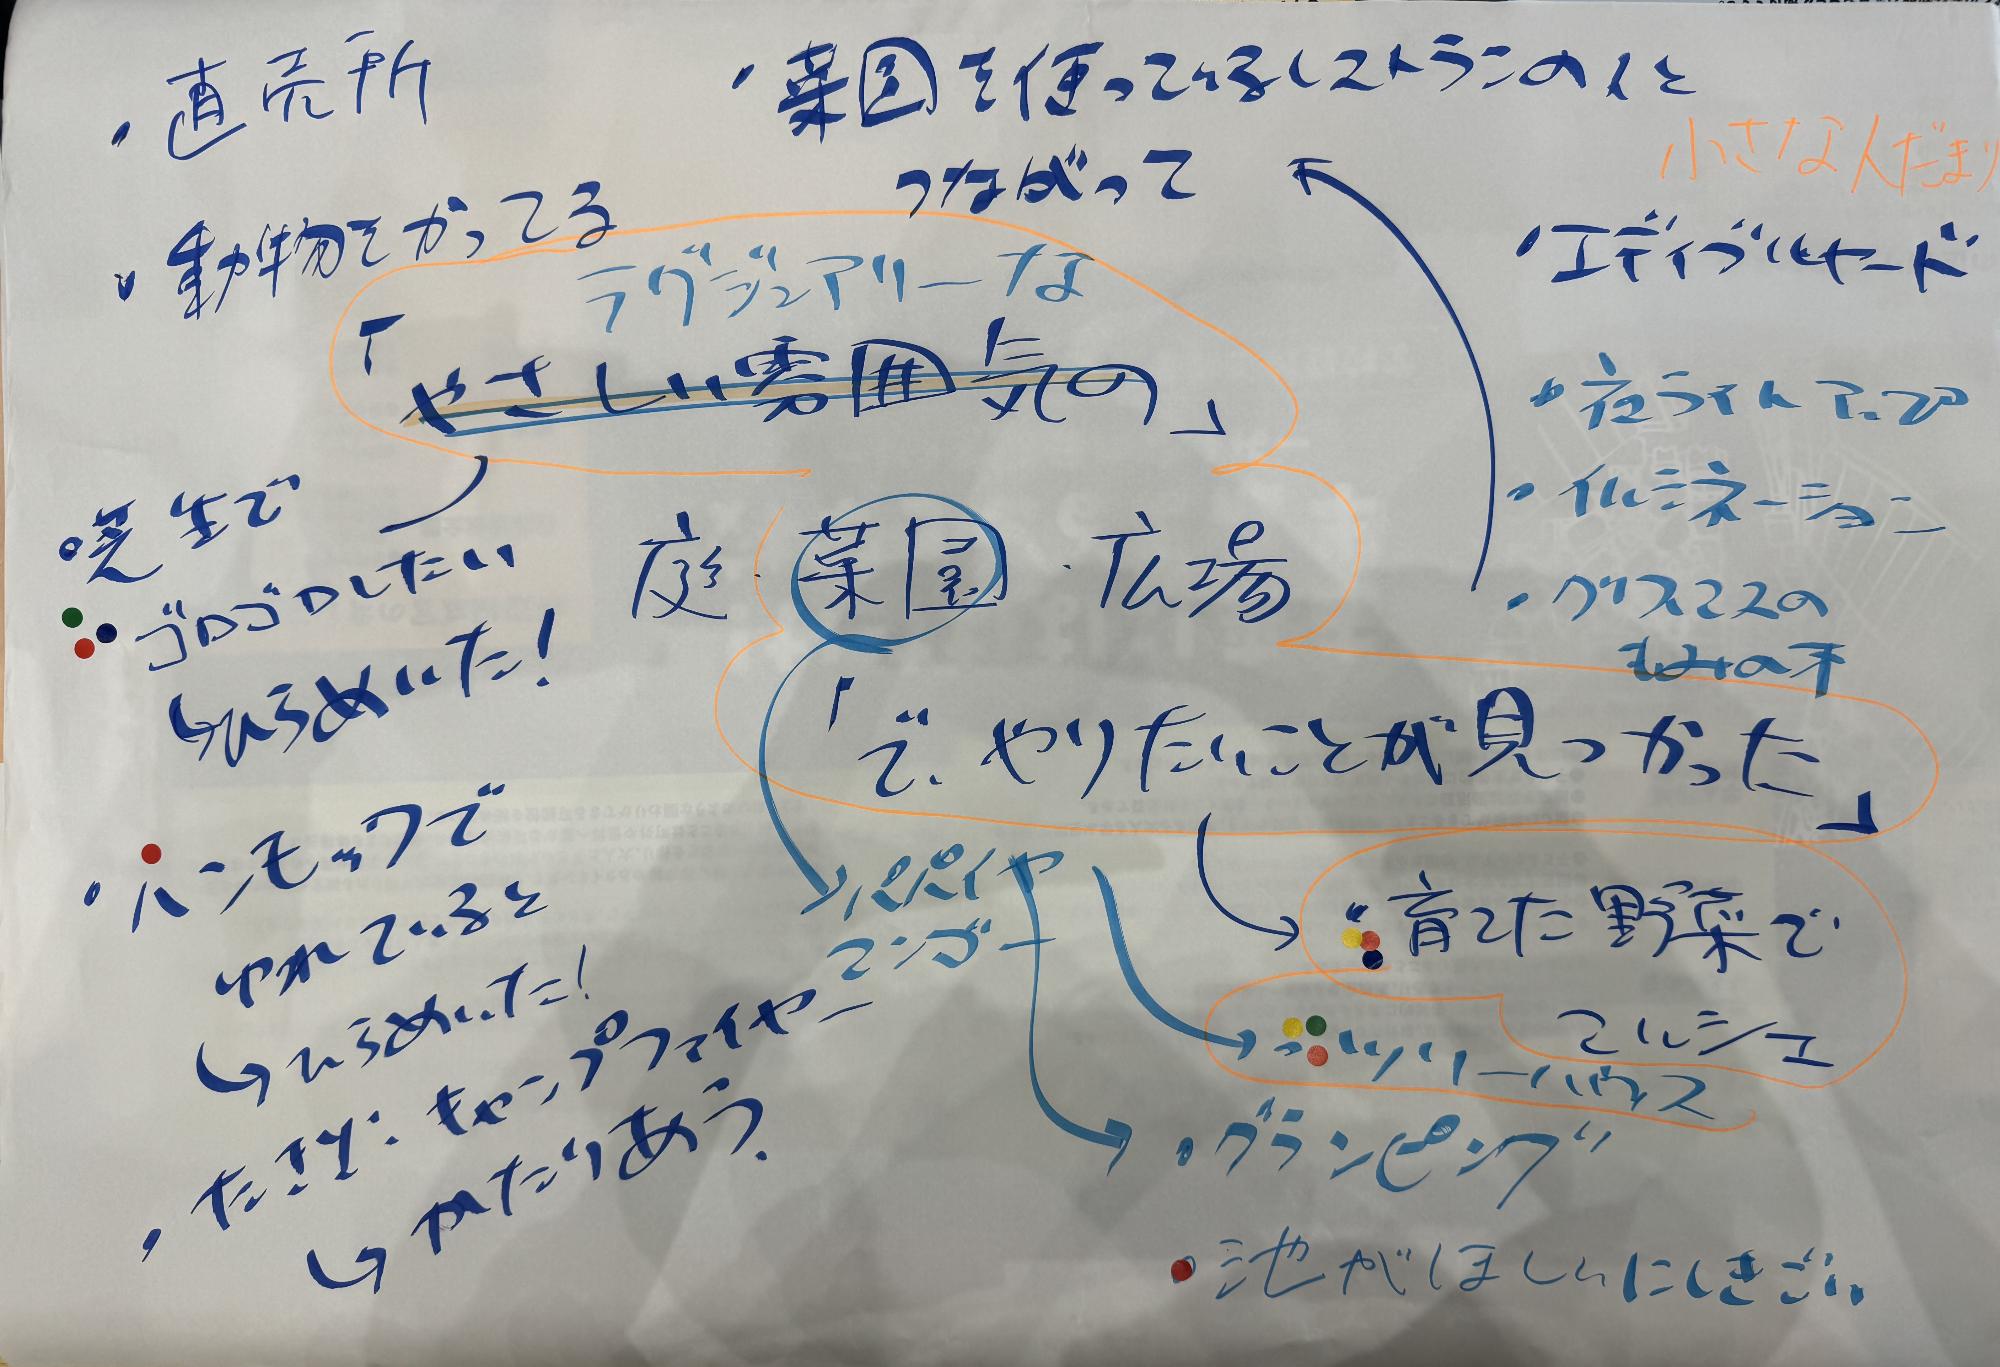 ・直売所
・菜園を使っているレストランの人と
つながって
小さな人だまり
・動物をかってる
・エディブルヤード
ラグジュアリーな
「やさしい雰囲気の」
・夜ライトアップ
・イルミネーション
・クリスマスの
もみの木
・芝生で
ゴロゴロしたい
↳ひらめいた!
庭・菜園・広場
「で、やりたいことが見つかった」
・ハンモックで
ゆれていると
↳ひらめいた!
パパイヤ
マンゴー
・育てた野菜で
マルシェ
・ツリーハウス
・たき火・キャンプファイヤー
↳かたりあう。
・グランピング
・池がほしい にしきごい